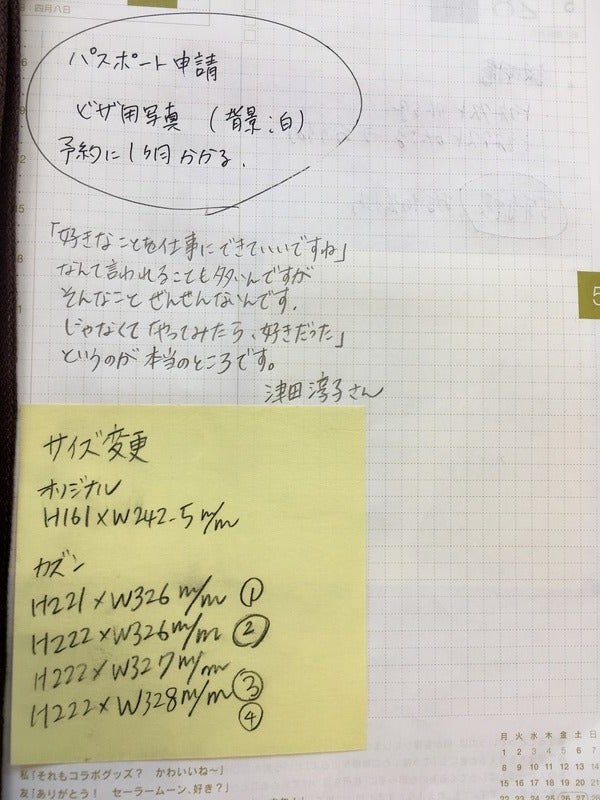 四月八日
パスポート申請
ビザ用写真 (背景:白)
予約に1ヶ月かかる.
「好きなことを仕事にできていいですね」
なんて言われることも多いんですが
そんなこと ぜんぜんないんです.
じゃなくて やってみたら、好きだった」
というのが 本当のところです。
津田淳子さん
5
サイズ変更
オリジナル
H161×W242.5m/m
カズン
H221×W326m/m ①
H222×W326m/m ②
H222×W327m/m
H222×W328m/m ③
④
私「それもコラボグッズ? かわいいね~」
友「ありがとう! セーラームーン、好き?」
月 火 水 木 金 土 日
1 2 3 4 5 6 7
8 9 10 11 12 13 14
15 16 17 18 19 20 21
22 23 24 25 26 27 28